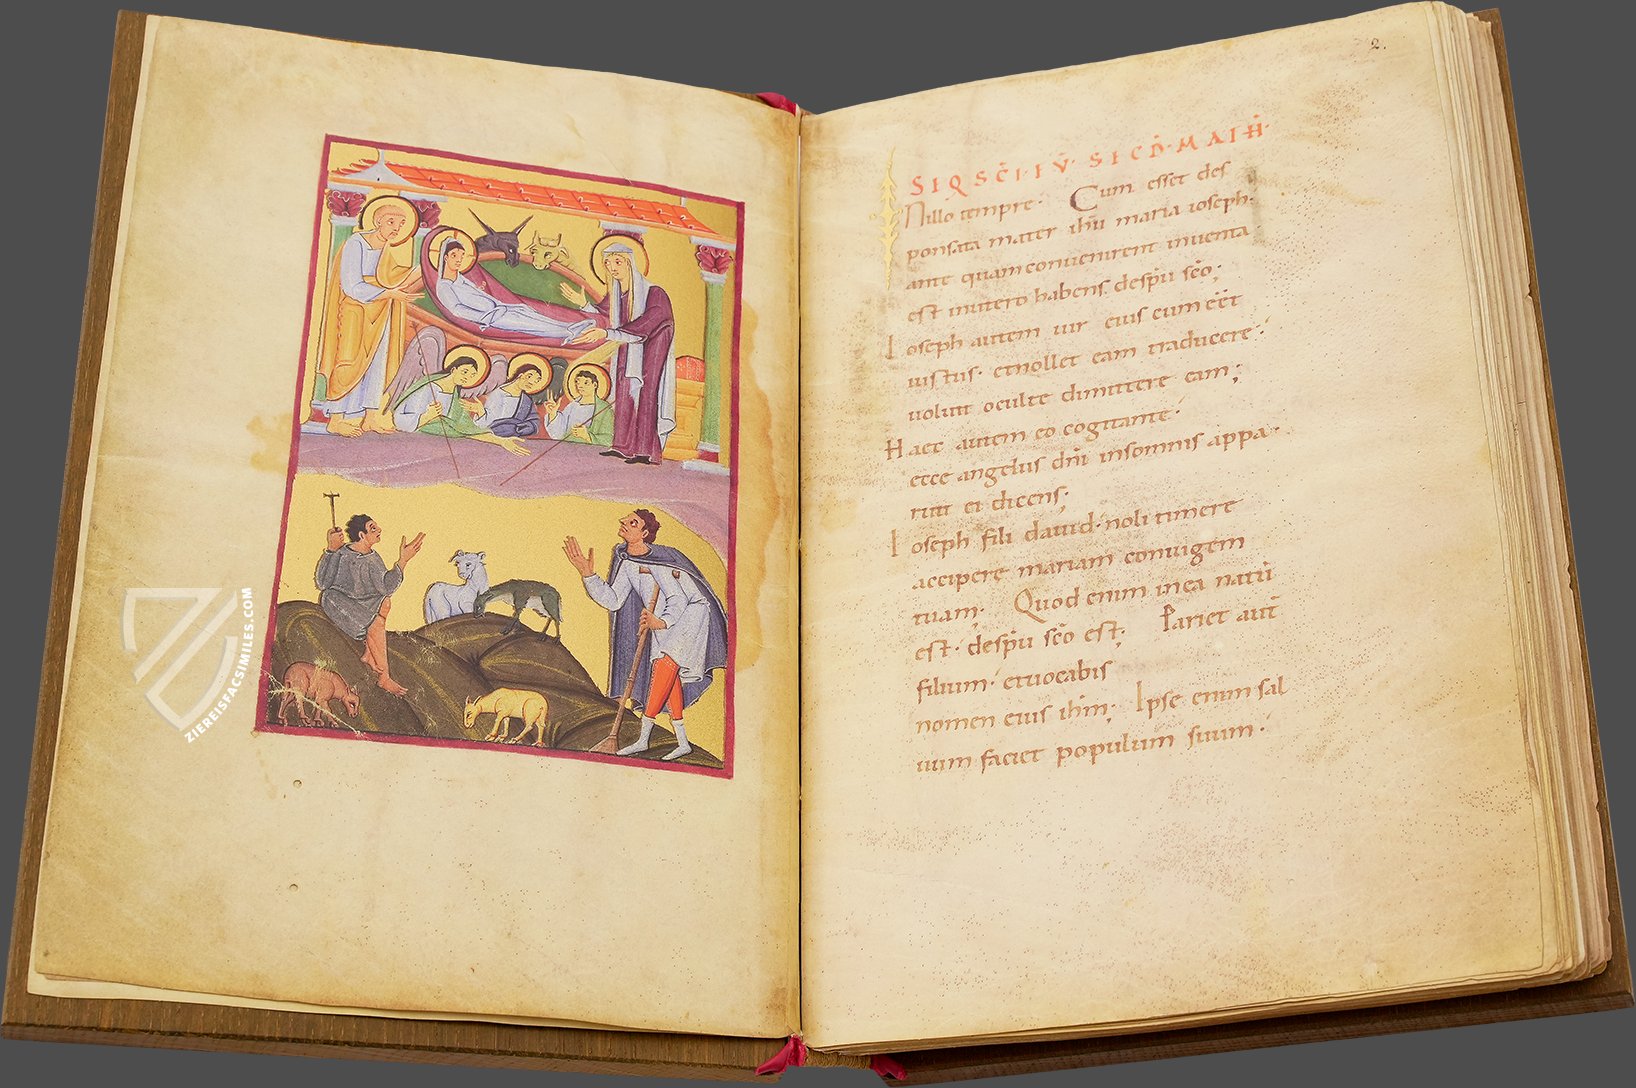 ZIEREISFACSIMILES.COM
2.
SIQ SC̄I·EV̄· SECD̄·MATH̄·
In illo tempre· Cum esset des
ponsata mater ihū maria ioseph·
ante quam conuenirent inuenta
est inutero habens despū sc̄o;
Ioseph autem uir eius cum eēt
iustus· etnollet eam traducere·
uoluit occulte dimittere eam;
Haec autem eo cogitante·
ecce angelus dn̄i insomnis appa·
ruit ei dicens;
Ioseph fili dauid· noli timere
accipere mariam coniugem
tuam; Quod enim inea natū
est· despū sc̄o est; Pariet aut̄
filium· etuocabis
nomen eius ihm̄; Ipse enim sal
uum faciet populum suum·